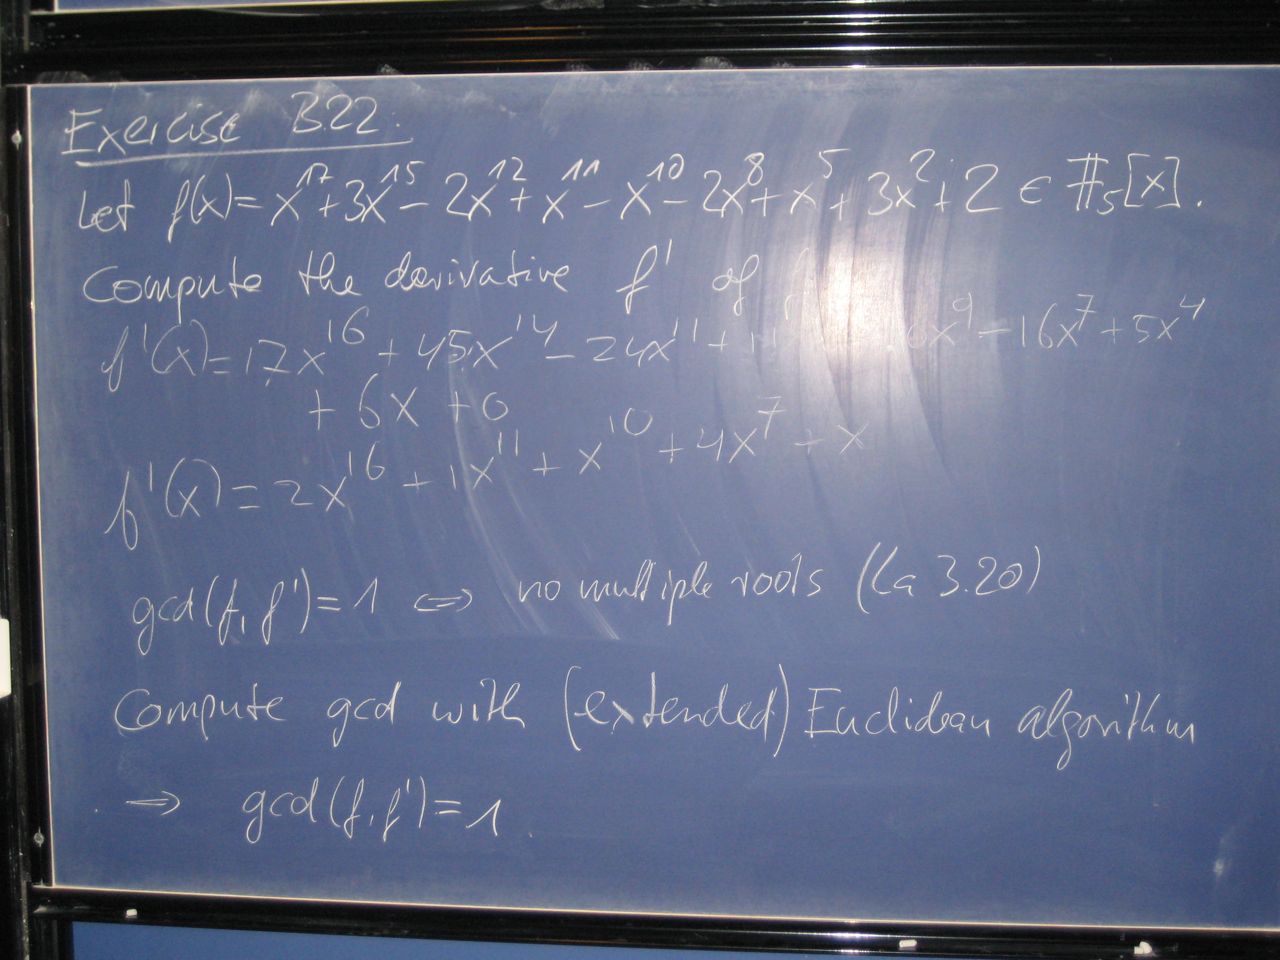 Exercise B.22:
Let f(x)= x^17+3x^15-2x^12+x^11-x^10-2x^8+x^5+3x^2+2 ∈ F_5[x].
Compute the derivative f' of
f'(x)=17x^16+45x^14-24x^11+11 x^9-16x^7+5x^4
+6x+0
f'(x)=2x^16+1x^11+x^10+4x^7+x
gcd(f,f')=1 ⇔ no multiple roots (La 3.20)
Compute gcd with (extended) Euclidean algorithm
⇒ gcd(f,f')=1.